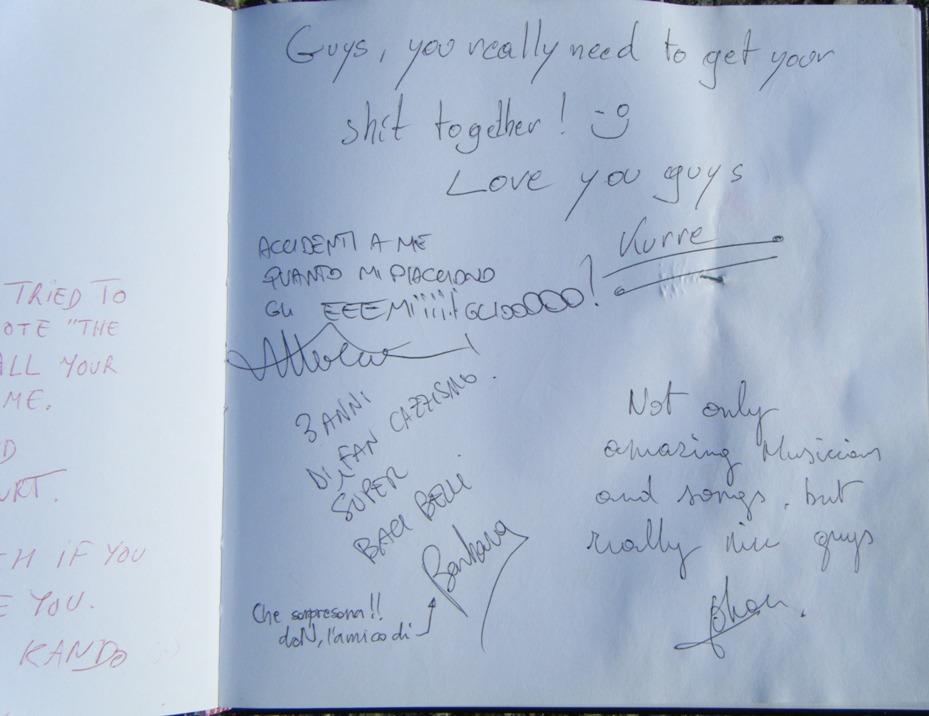 TRIED TO
OTE "THE
ALL YOUR
ME.
D
URT.
CH IF YOU
E YOU.
KANDO
Guys, you really need to get your
shit together!
Love you guys
Kurre
ACCIDENTI A ME
QUANTO MI PIACCIONO
GLI EEEMiiiiiGLIOOOOO!
3 ANNI
DI FAN CAZZISMO.
SUPER
BACI BELLI
Barbara
Che sorpresona!!
doN, l'amico di
Not only
amazing Musicians
and songs, but
really nice guys